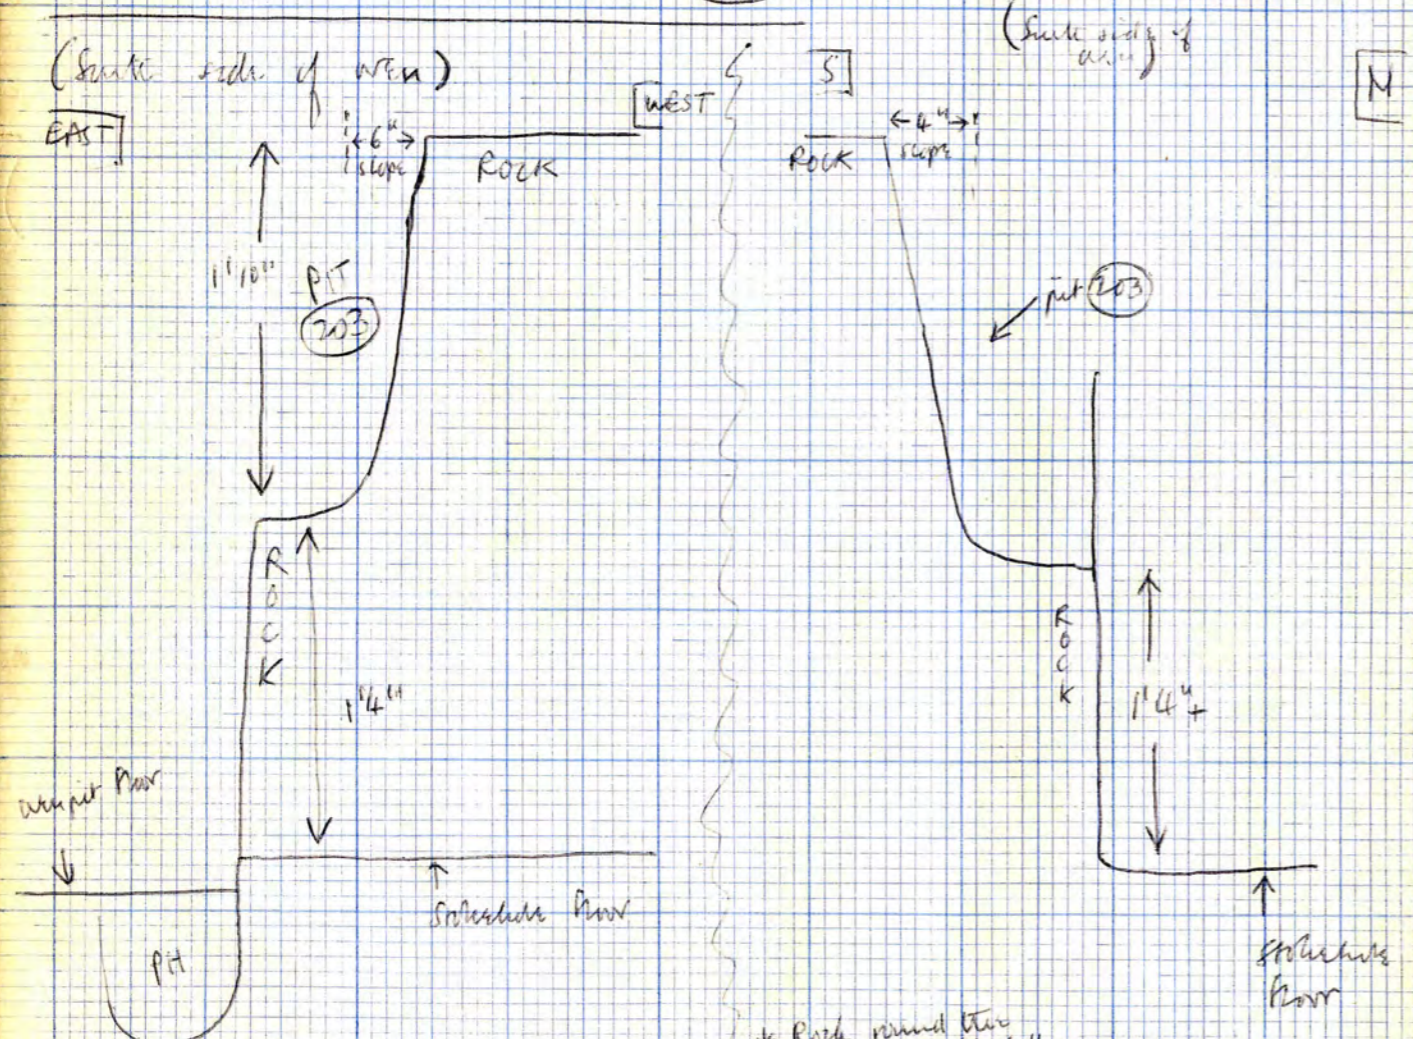 (South side of oven)
EAST
WEST
←6"→
slope
ROCK
1'10"
PIT
203
ROCK
1'4"
oven pit floor
PH
Stokehole floor
(South side of
oven)
S
N
←4"→
slope
ROCK
pit 203
ROCK
1'4"+
Stokehole
floor
* Rock round the